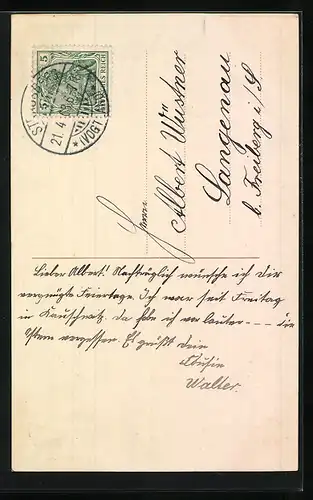 5 5
DEUTSCHES REICH
21.4.
(VOGTL)
Herrn
Albert Wüstner
Langenau
b. Freiberg i/S
Lieber Albert! Nachträglich wünsche ich dir
vergnügte Feiertage. Ich war seit Freitag
in Kauschwitz. da habe ich vor lauter - - - die
Ostern vergessen. Es grüßt dein
Cousin
Walter.